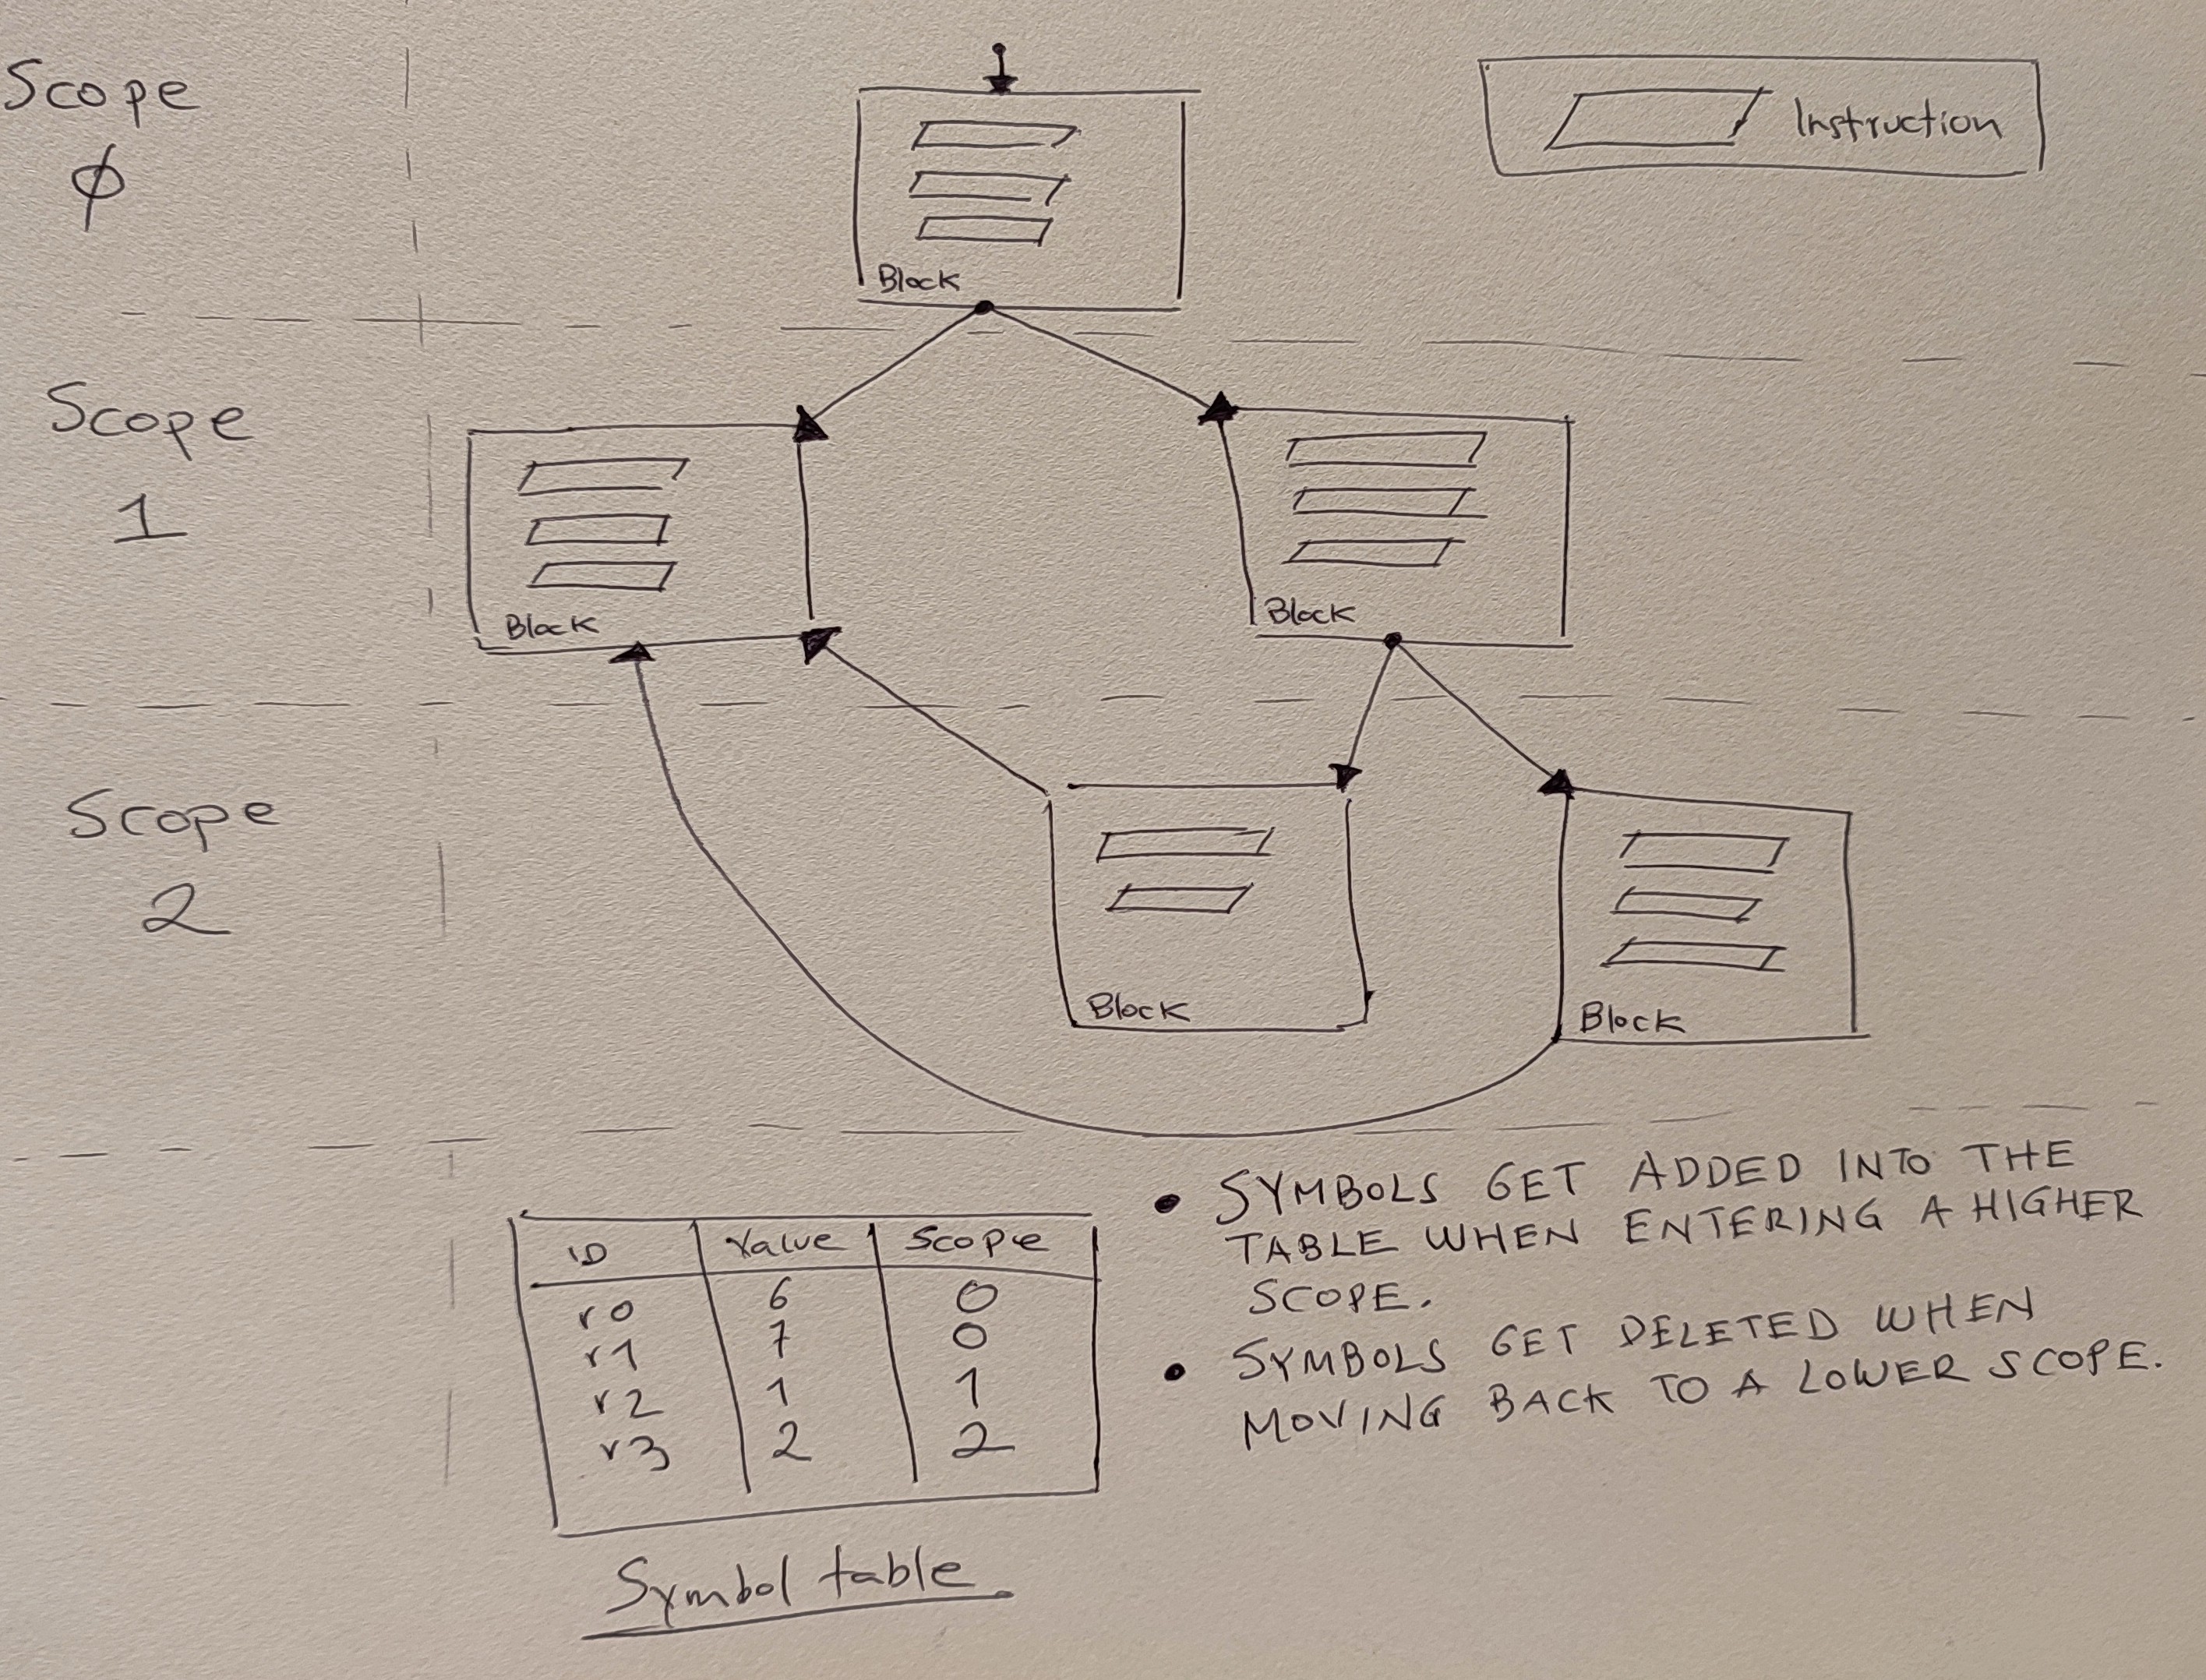 Scope
0
Instruction
Block
Scope
1
Block
Block
Scope
2
Block
Block
ID Value Scope
r0 6 0
r1 7 0
r2 1 1
r3 2 2
Symbol table
• SYMBOLS GET ADDED INTO THE
TABLE WHEN ENTERING A HIGHER
SCOPE.
• SYMBOLS GET DELETED WHEN
MOVING BACK TO A LOWER SCOPE.